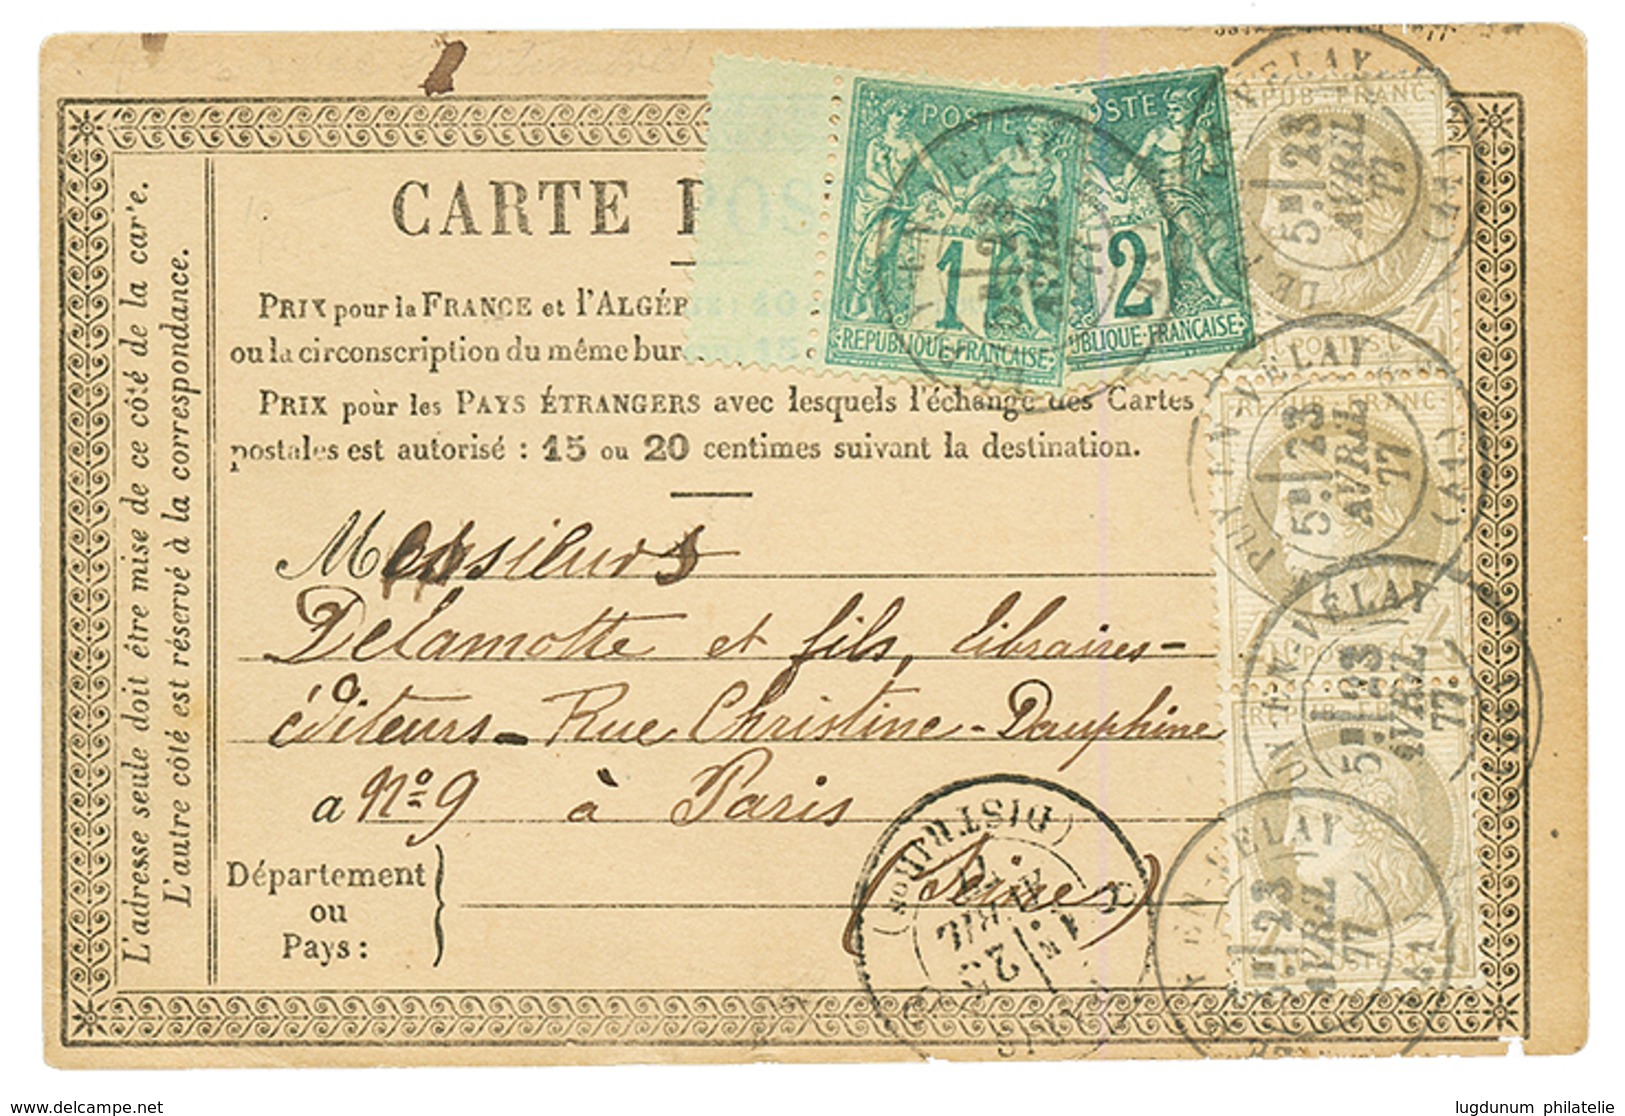 CARTE POS
PRIX pour la FRANCE et l'ALGÉR
ou la circonscription du même bur
PRIX pour les PAYS ÉTRANGERS avec lesquels l'échange des Cartes
postales est autorisé : 15 ou 20 centimes suivant la destination.
L'adresse seule doit être mise de ce côté de la carte.
L'autre côté est réservé à la correspondance.
Messieurs
Delamotte et fils, libraires-
éditeurs - Rue Christine-Dauphine
a No 9 à Paris
(Seine)
Département
ou
Pays :
POSTE
1
REPUBLIQUE FRANÇAISE
POSTE
2
UBLIQUE FRANÇAISE
REPUB FRANC
4
POSTES
REPUB FRANC
4
POSTES
REPUB FRANC
POSTES
LE PUY-EN-VELAY
5E 23
AVRIL
77
PUY-EN-VELAY
5E 23
AVRIL
77
PUY-EN-VELAY
5E 23
AVRIL
77
EN-VELAY
5E 23
AVRIL
77
PUY-EN-VELAY
23
AVRIL
77
PARIS
(DISTRIBon)
1E
AVRIL
delcampe.net
lugdunum philatelie